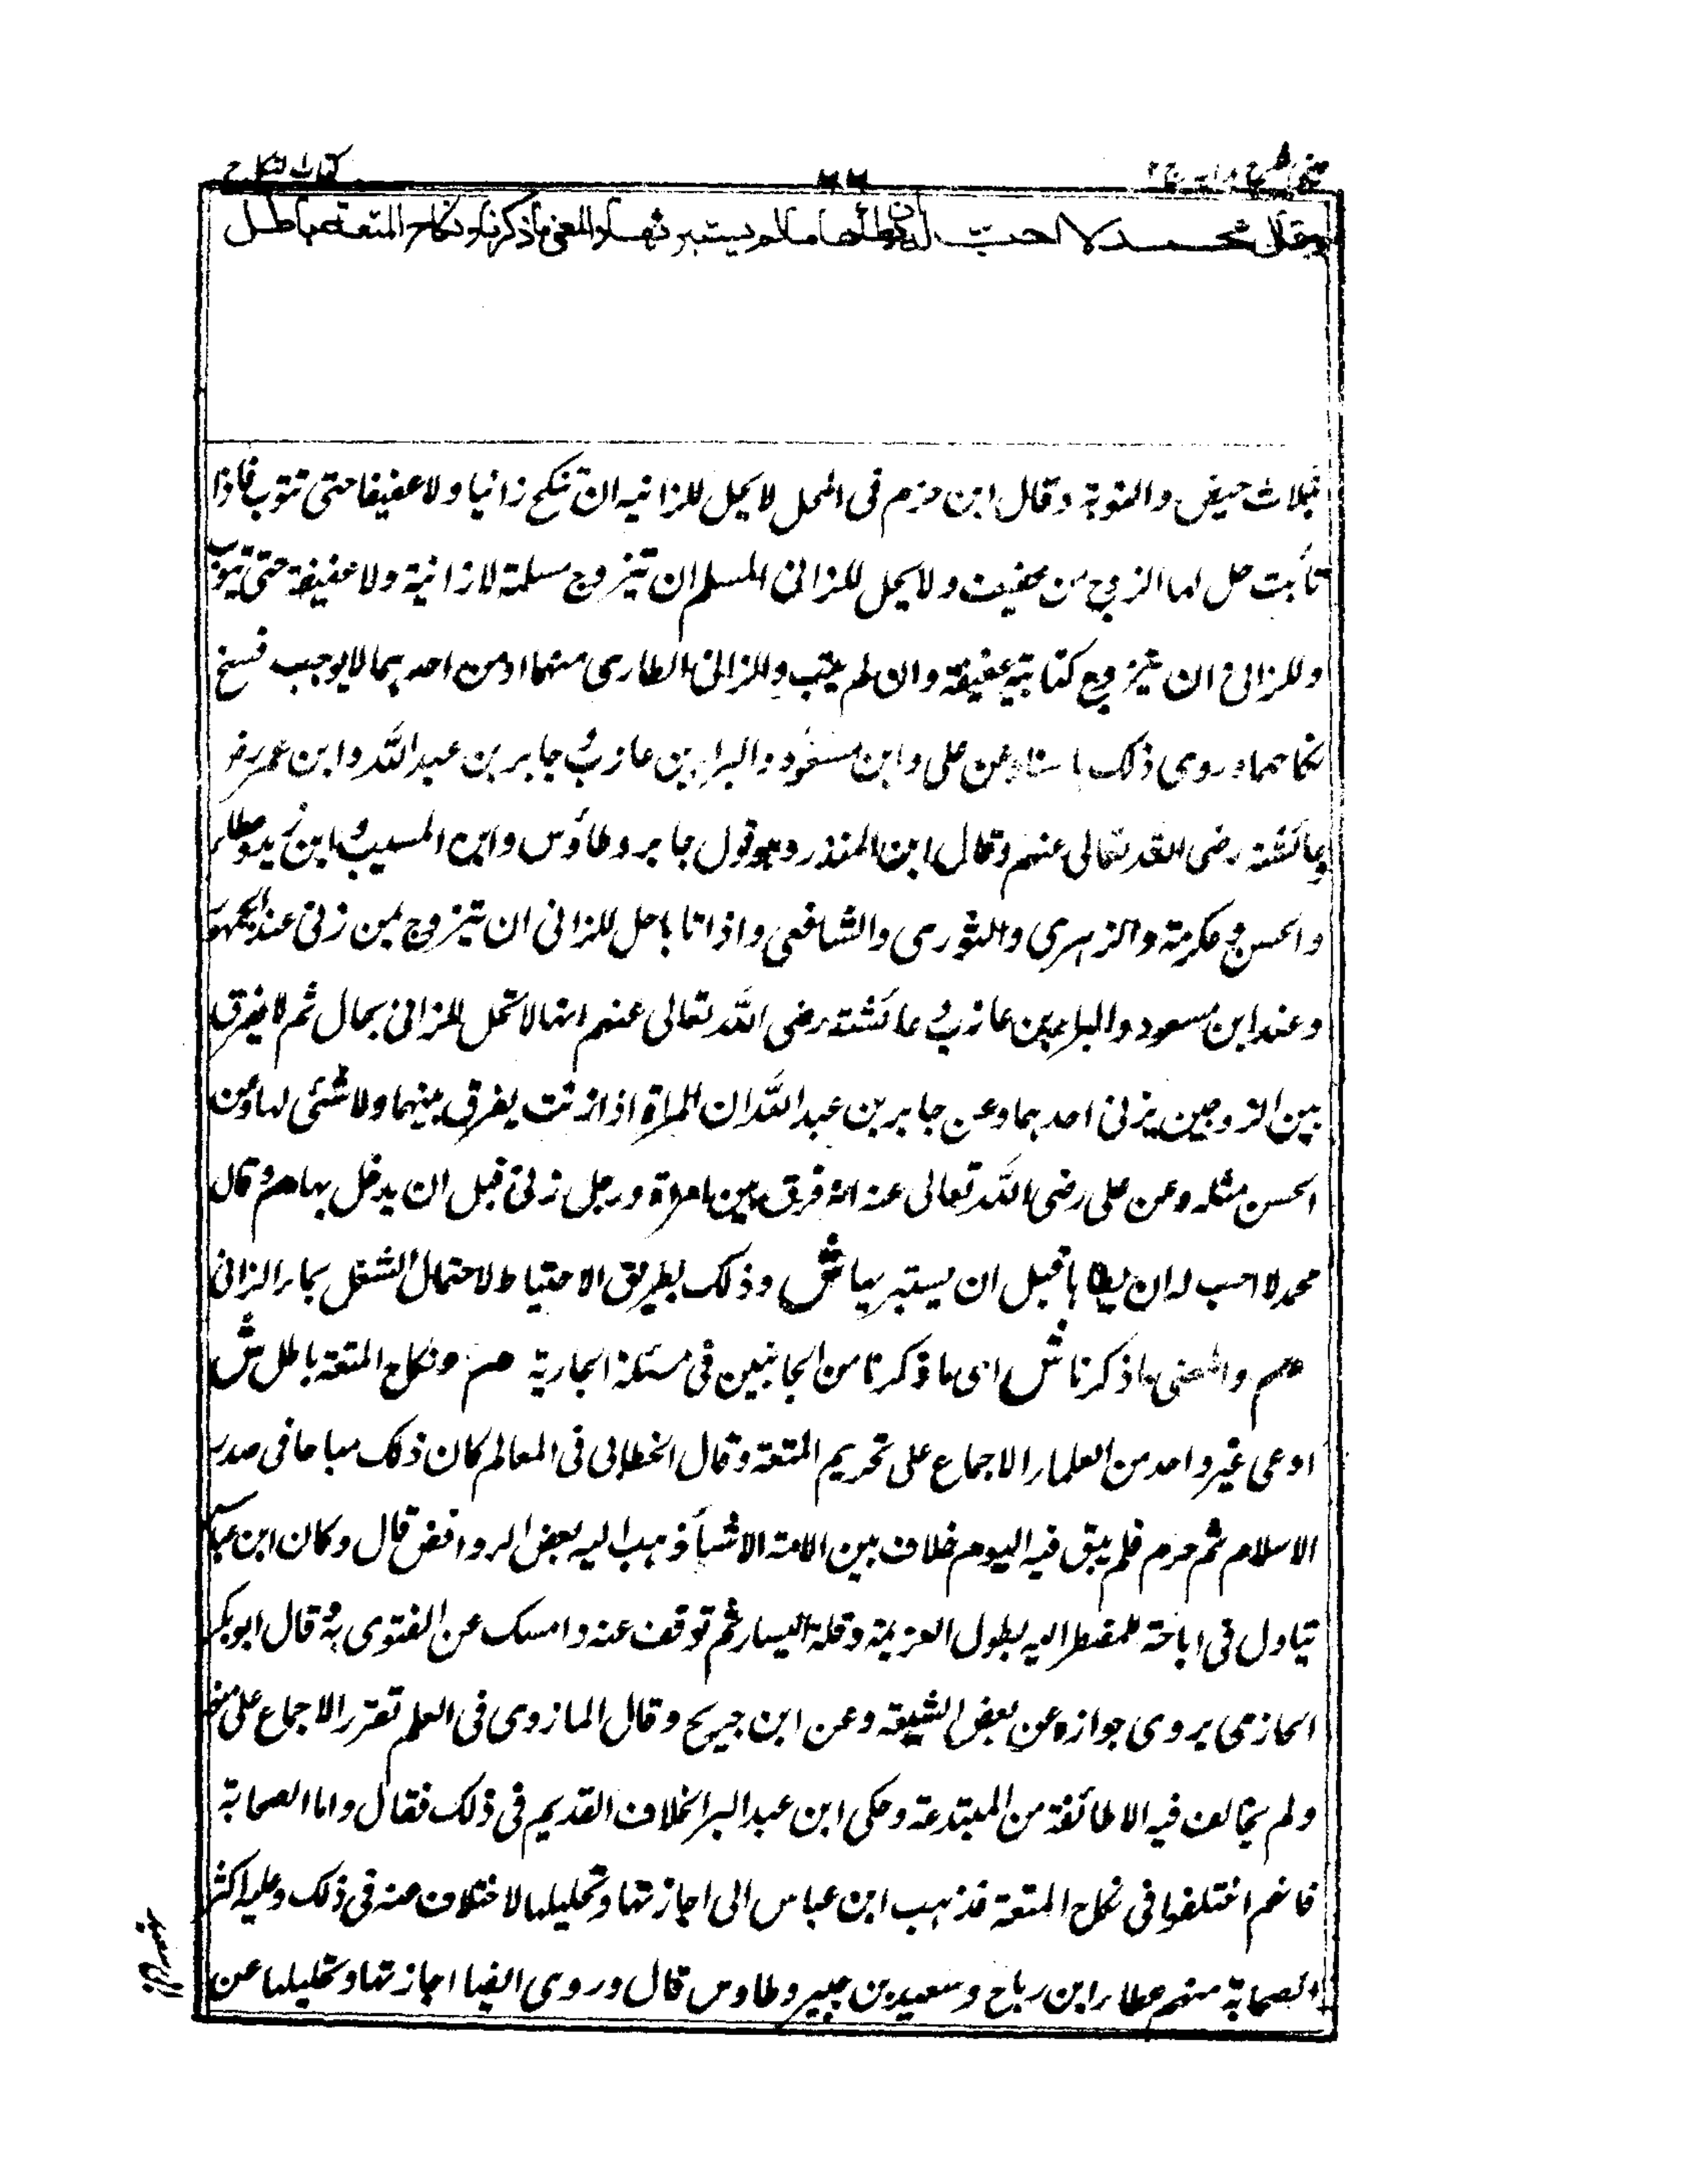 كتاب النكاح
وقال محمد لا احب له ان يطأها مالم يستبرئها والمعنى ما ذكرنا ونكاح المتعة باطل
بثلاث حيض والتوبة وقال ابن حزم فى المحلى لا يحل للزانيه ان تنكح زانيا ولا عفيفا حتى تتوب فاذا
تأبت حل لها الزوج من عفيف ولا يحل للزانى المسلم ان يتزوج مسلمة لا زانية ولا عفيفة حتى يتوب
وللزانى ان يتزوج كتابية عفيفة وان لم يتب والزانى الطارى منهما او من احدهما لا يوجب فسخ
نكاحهما وروى ذلك باسناده عن على وابن مسعود والبراء بن عازب وجابر بن عبد الله وابن عمر
وعائشة رضى الله تعالى عنهم وقال ابن المنذر وهو قول جابر وطاؤس وابن المسيب وابن زيد وعطاء
والحسن وعكرمة والزهرى والثورى والشافعى واذا تابا حل للزانى ان يتزوج لمن زنى عند الجمهور
وعند ابن مسعود والبراء بن عازب وعائشة رضى الله تعالى عنهم انها لا تحل للزانى بحال ثم لا يفرق
بين الزوجين يزنى احدهما وعن جابر بن عبد الله ان المراة اذا زنت يفرق بينهما ولا شئى لها وعن
الحسن مثله وعن على رضى الله تعالى عنه انه فرق بين امراة ورجل زنى قبل ان يدخل بها هم وقال
محمد لا احب له ان يطاها قبل ان يستبريها ش وذلك بطريق الاحتياط لاحتمال الشغل بماء الزانى
هم والمعنى ما ذكرنا ش اى ما ذكرنا من الجانبين فى مسئلة الجارية هم ونكاح المتعة باطل ش
ادعى غير واحد من العلماء الاجماع على تحريم المتعة وقال الخطابى فى المعالم كان ذلك مباحا فى صدر
الاسلام ثم حرم فلم يبق فيه اليوم خلاف بين الامة الا شيأ ذهب اليه بعض الروافض قال وكان ابن عباس
يتاول فى اباحته للمضطر اليه بطول العزبة وقلة اليسار ثم توقف عنه وامسك عن الفتوى به وقال ابوبكر
الحازمى يروى جوازه عن بعض الشيعة وعن ابن جريج وقال المازرى فى المعلم تقرر الاجماع على منعه
ولم يخالف فيه الا طائفة من المبتدعة وحكى ابن عبد البر الخلاف القديم فى ذلك فقال واما الصحابة
فانهم اختلفوا فى نكاح المتعة فذهب ابن عباس الى اجازتها وتحليلها لا خلاف عنه فى ذلك وعليه اكثر
الصحابة منهم عطاء ابن رباح وسعيد بن جبير وطاوس قال وروى ايضا اجازتها وتحليلها عن